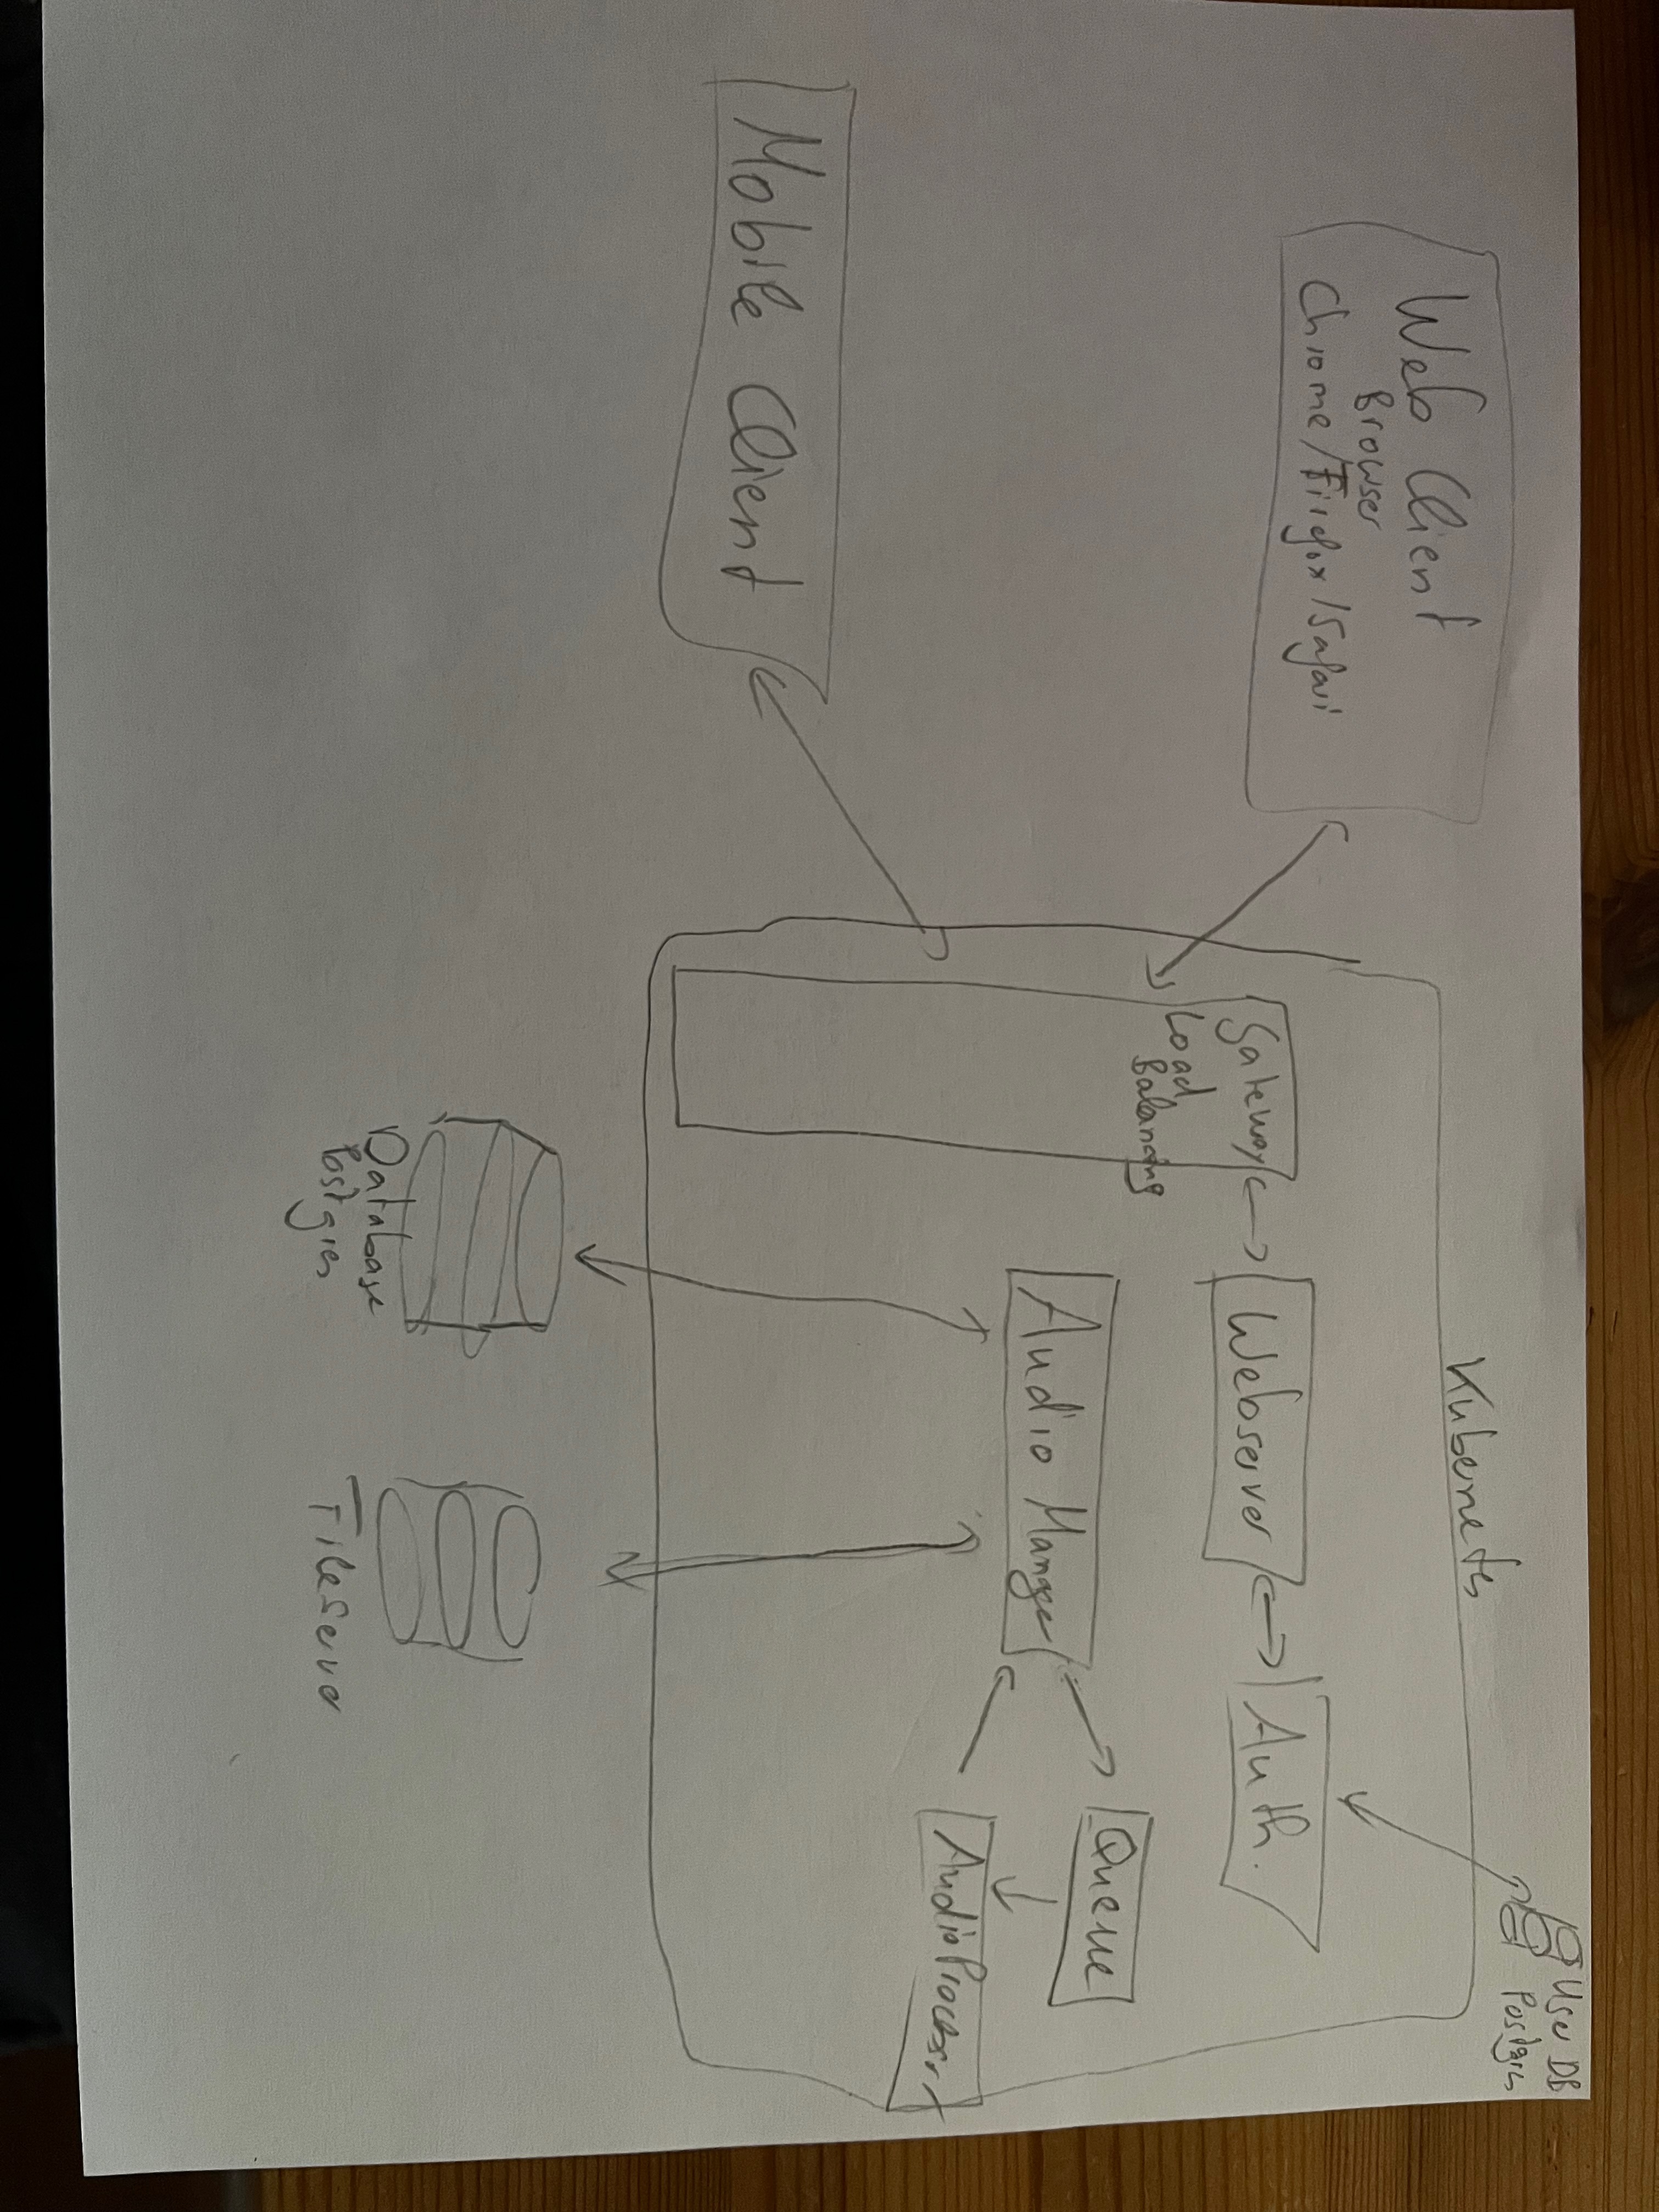 Web Client
Browser
Chrome/Firefox/Safari
Mobile Client
Kubernets
Gateway
Load
Balancing
Webserver
Auth.
User DB
Postgres
Audio Manger
Queue
AudioProcessor
Database
Postgres
Fileserver